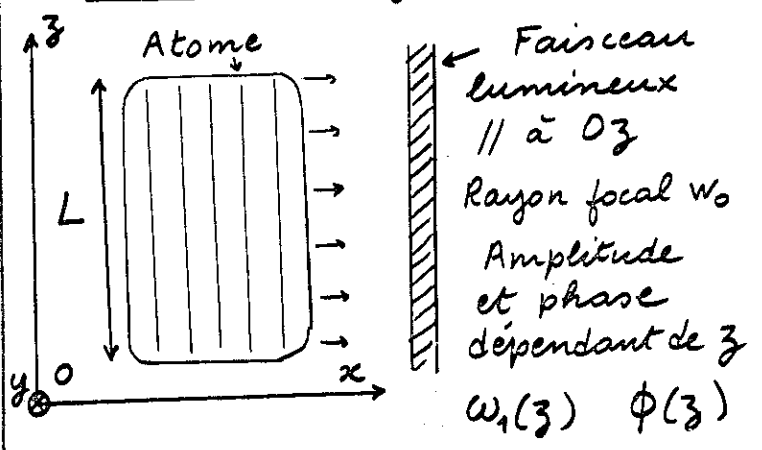 z
Atome
L
y O
x
Faisceau
lumineux
// à Oz
Rayon focal w₀
Amplitude
et phase
dépendant de z
ω₁(z) ϕ(z)